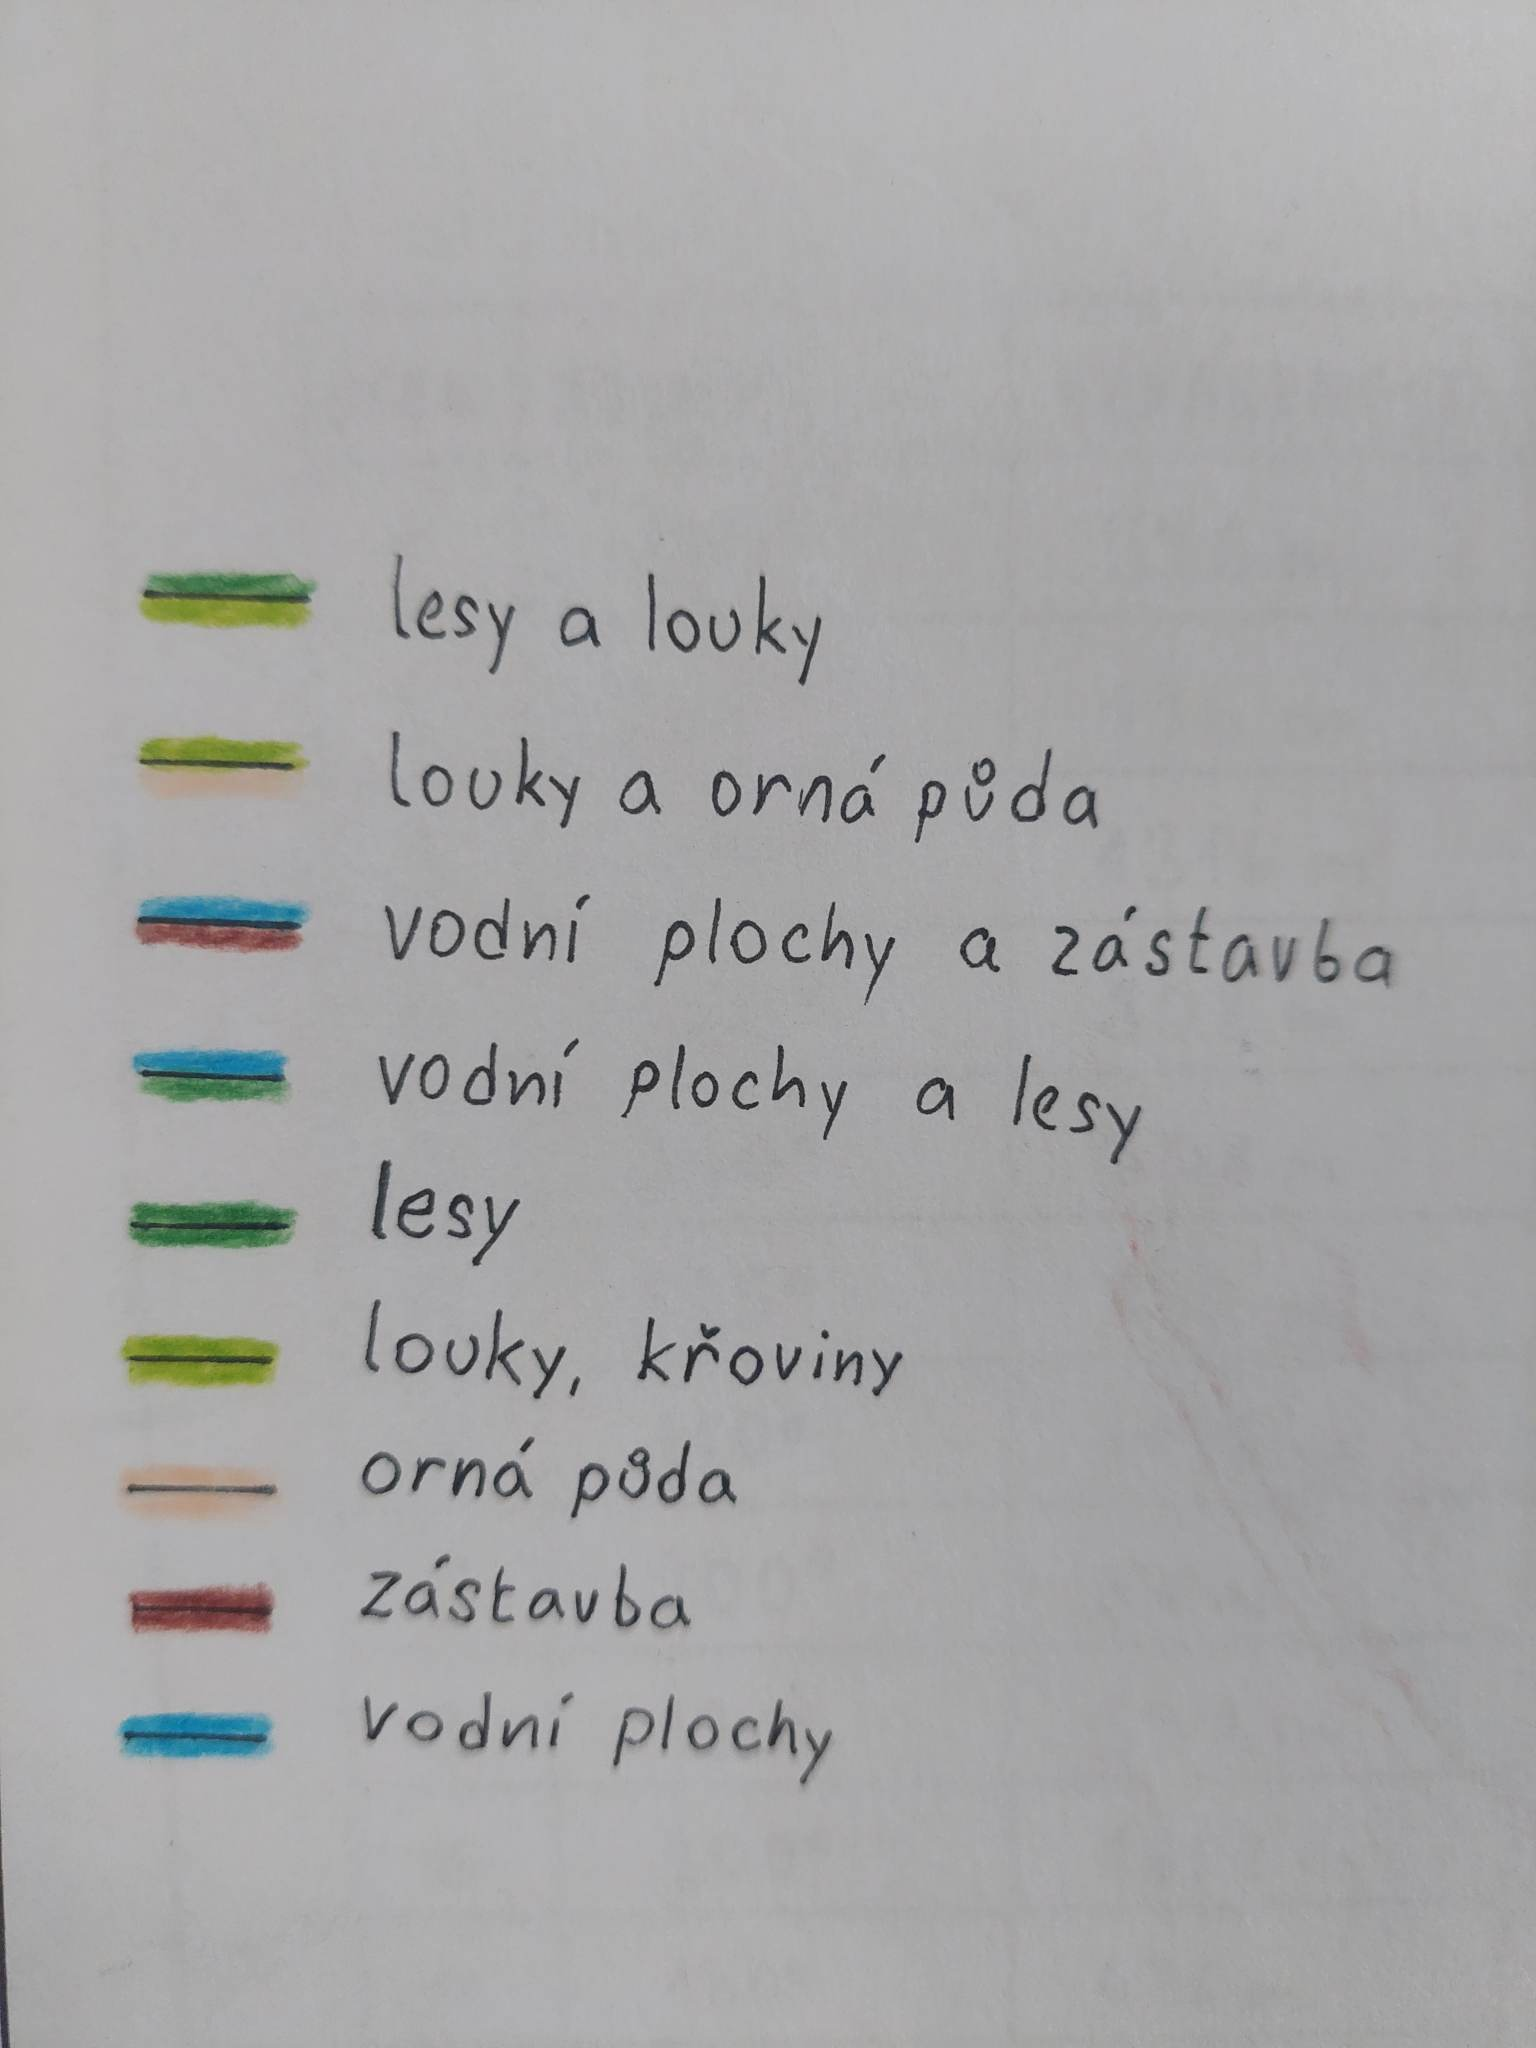 lesy a louky
louky a orná půda
vodní plochy a zástavba
vodní plochy a lesy
lesy
louky, křoviny
orná půda
zástavba
vodní plochy